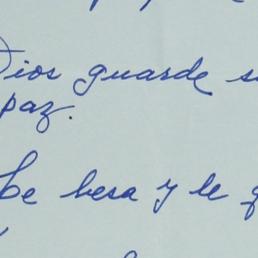 Dios guarde su
paz.
Le besa y le q